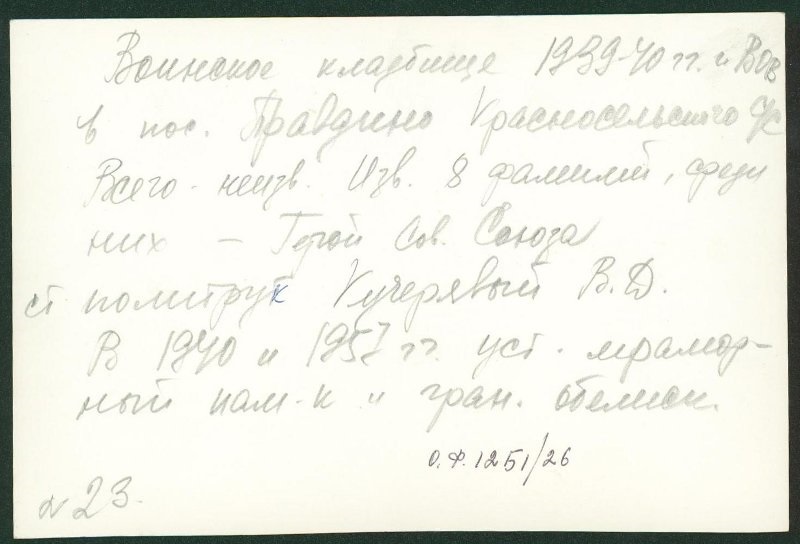 Воинское кладбище 1939-40 гг. и ВОВ
в пос. Правдино Красносельского с/с
Всего - неизв. Изв. 8 фамилий, среди
них - Герой Сов. Союза
ст политрук Кучерявый В.Д.
В 1940 и 1957 гг. уст. мрамор-
ный пам-к и гран. обелиск.
О.Ф.1251/26
№ 23.